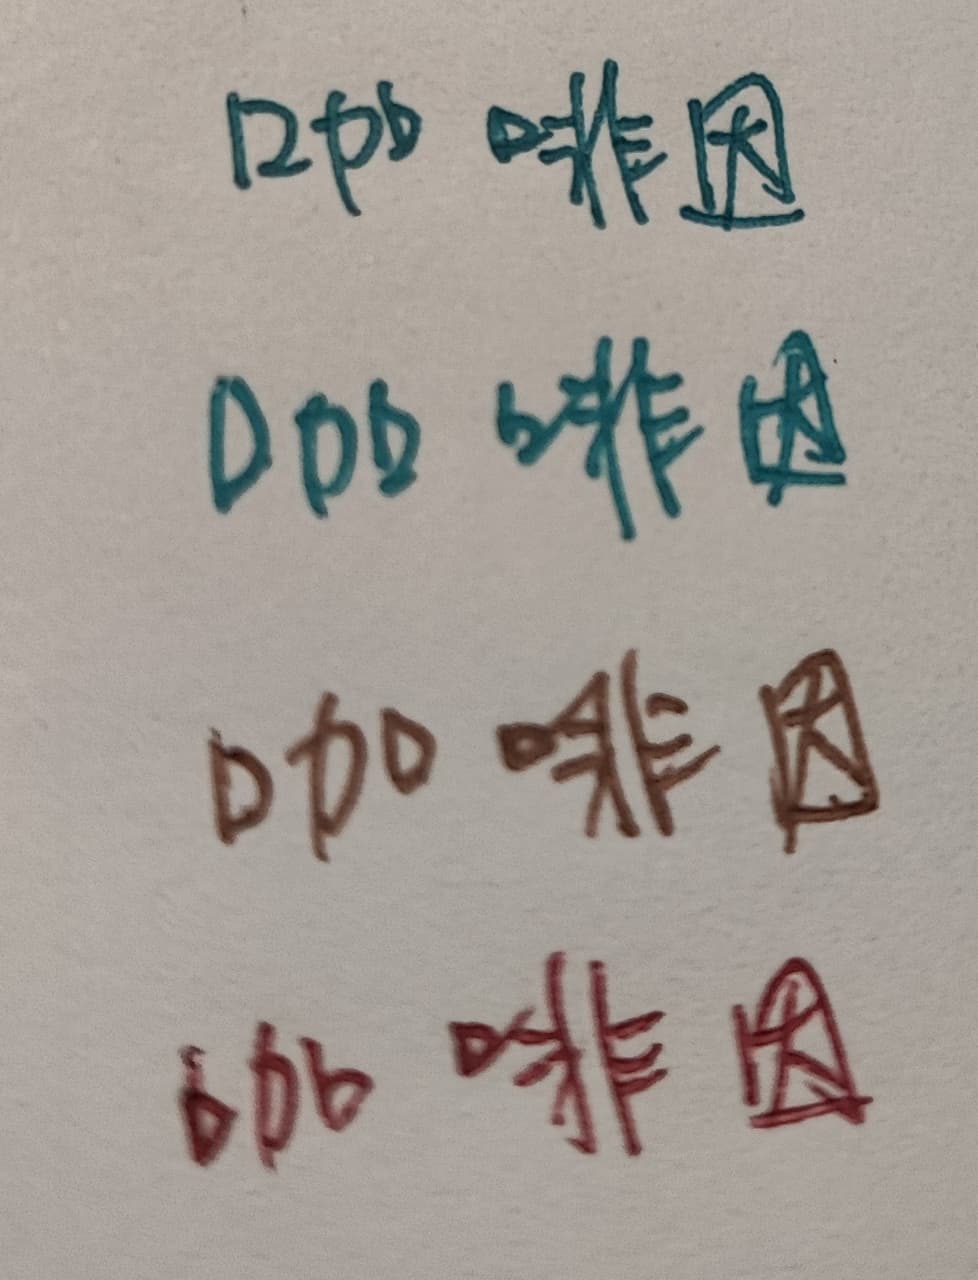 咖啡因
咖啡因
咖啡因
咖啡因